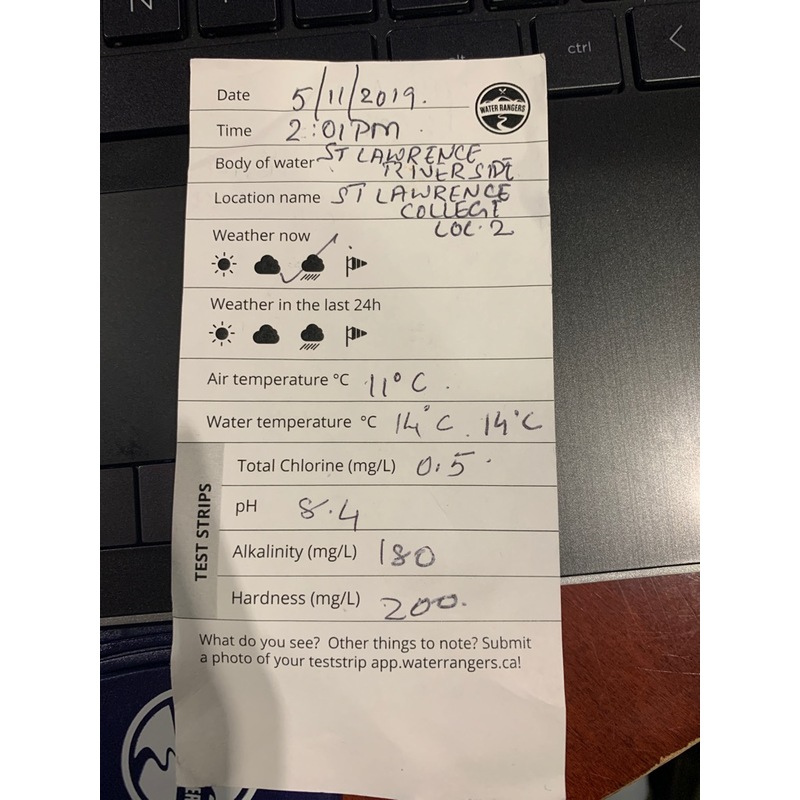 N
alt
ctrl
<
Date 5/11/2019.
WATER RANGERS
Time 2:01PM
Body of water ST LAWRENCE
RIVERSIDE
Location name ST LAWRENCE
COLLEGE
LOC. 2
Weather now
Weather in the last 24h
Air temperature °C 11°C.
Water temperature °C 14°C. 14°C
TEST STRIPS
Total Chlorine (mg/L) 0.5
pH 8.4
Alkalinity (mg/L) 180
Hardness (mg/L) 200.
What do you see? Other things to note? Submit
a photo of your teststrip app.waterrangers.ca!